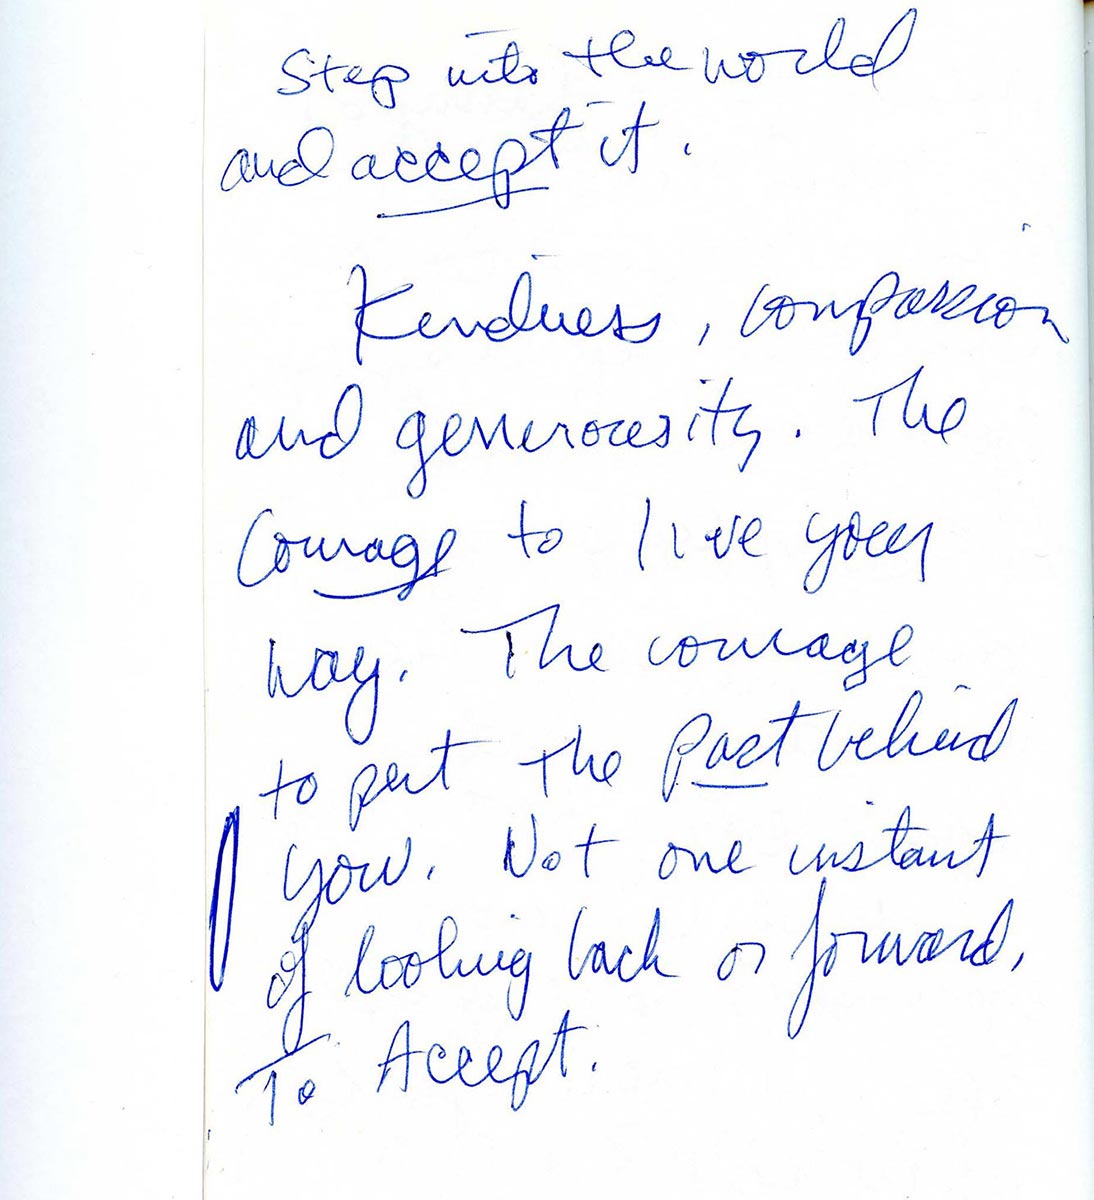 Step into the world
and accept it.
Kindness, compassion
and generousity. The
Courage to live your
way. The courage
to put the past behind
you. Not one instant
of looking back or forward,
To Accept.